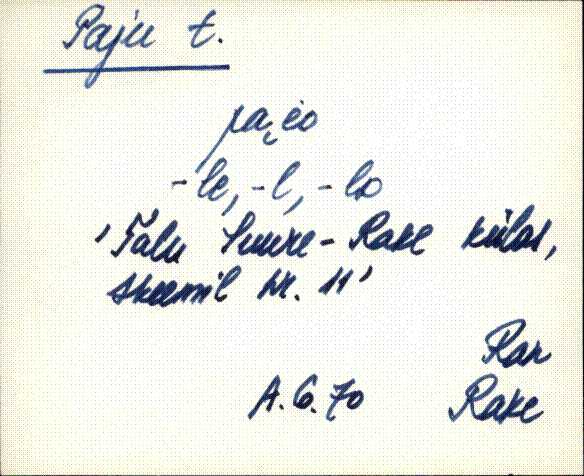 Paju t.
pa̮i̬o
-le, -l, -lo
'Talu Suure-Rake külas,
skeemil nr. 11'
Ran
A.G.70 Rake